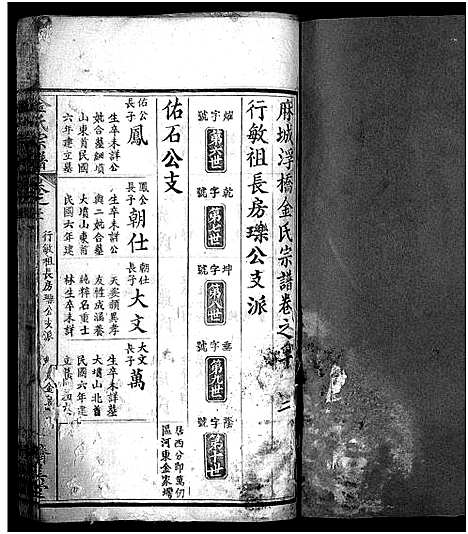 麻城浮橋金氏宗譜卷之
行敏祖長房瓅公支派
耀字號 第六世
乾字號 第七世
坤字號 第八世
垂字號 第九世
蔭字號 第十世
佑石公支
居西分即萬仞
區河東金家塆
佑公長子 鳳
生卒未詳公
姚合墓
山東首民國
六年建立墓
鳳公長子 朝仕
生卒未詳公
與二姚合墓
大墳山東首
民國六年建
朝仕長子 大文
天姿穎異孝
友性成涵養
純粹名重士
林生卒未詳
大文長子 萬
生卒未詳墓
大墳山北首
民國六年
行敏祖長房瓅公支派